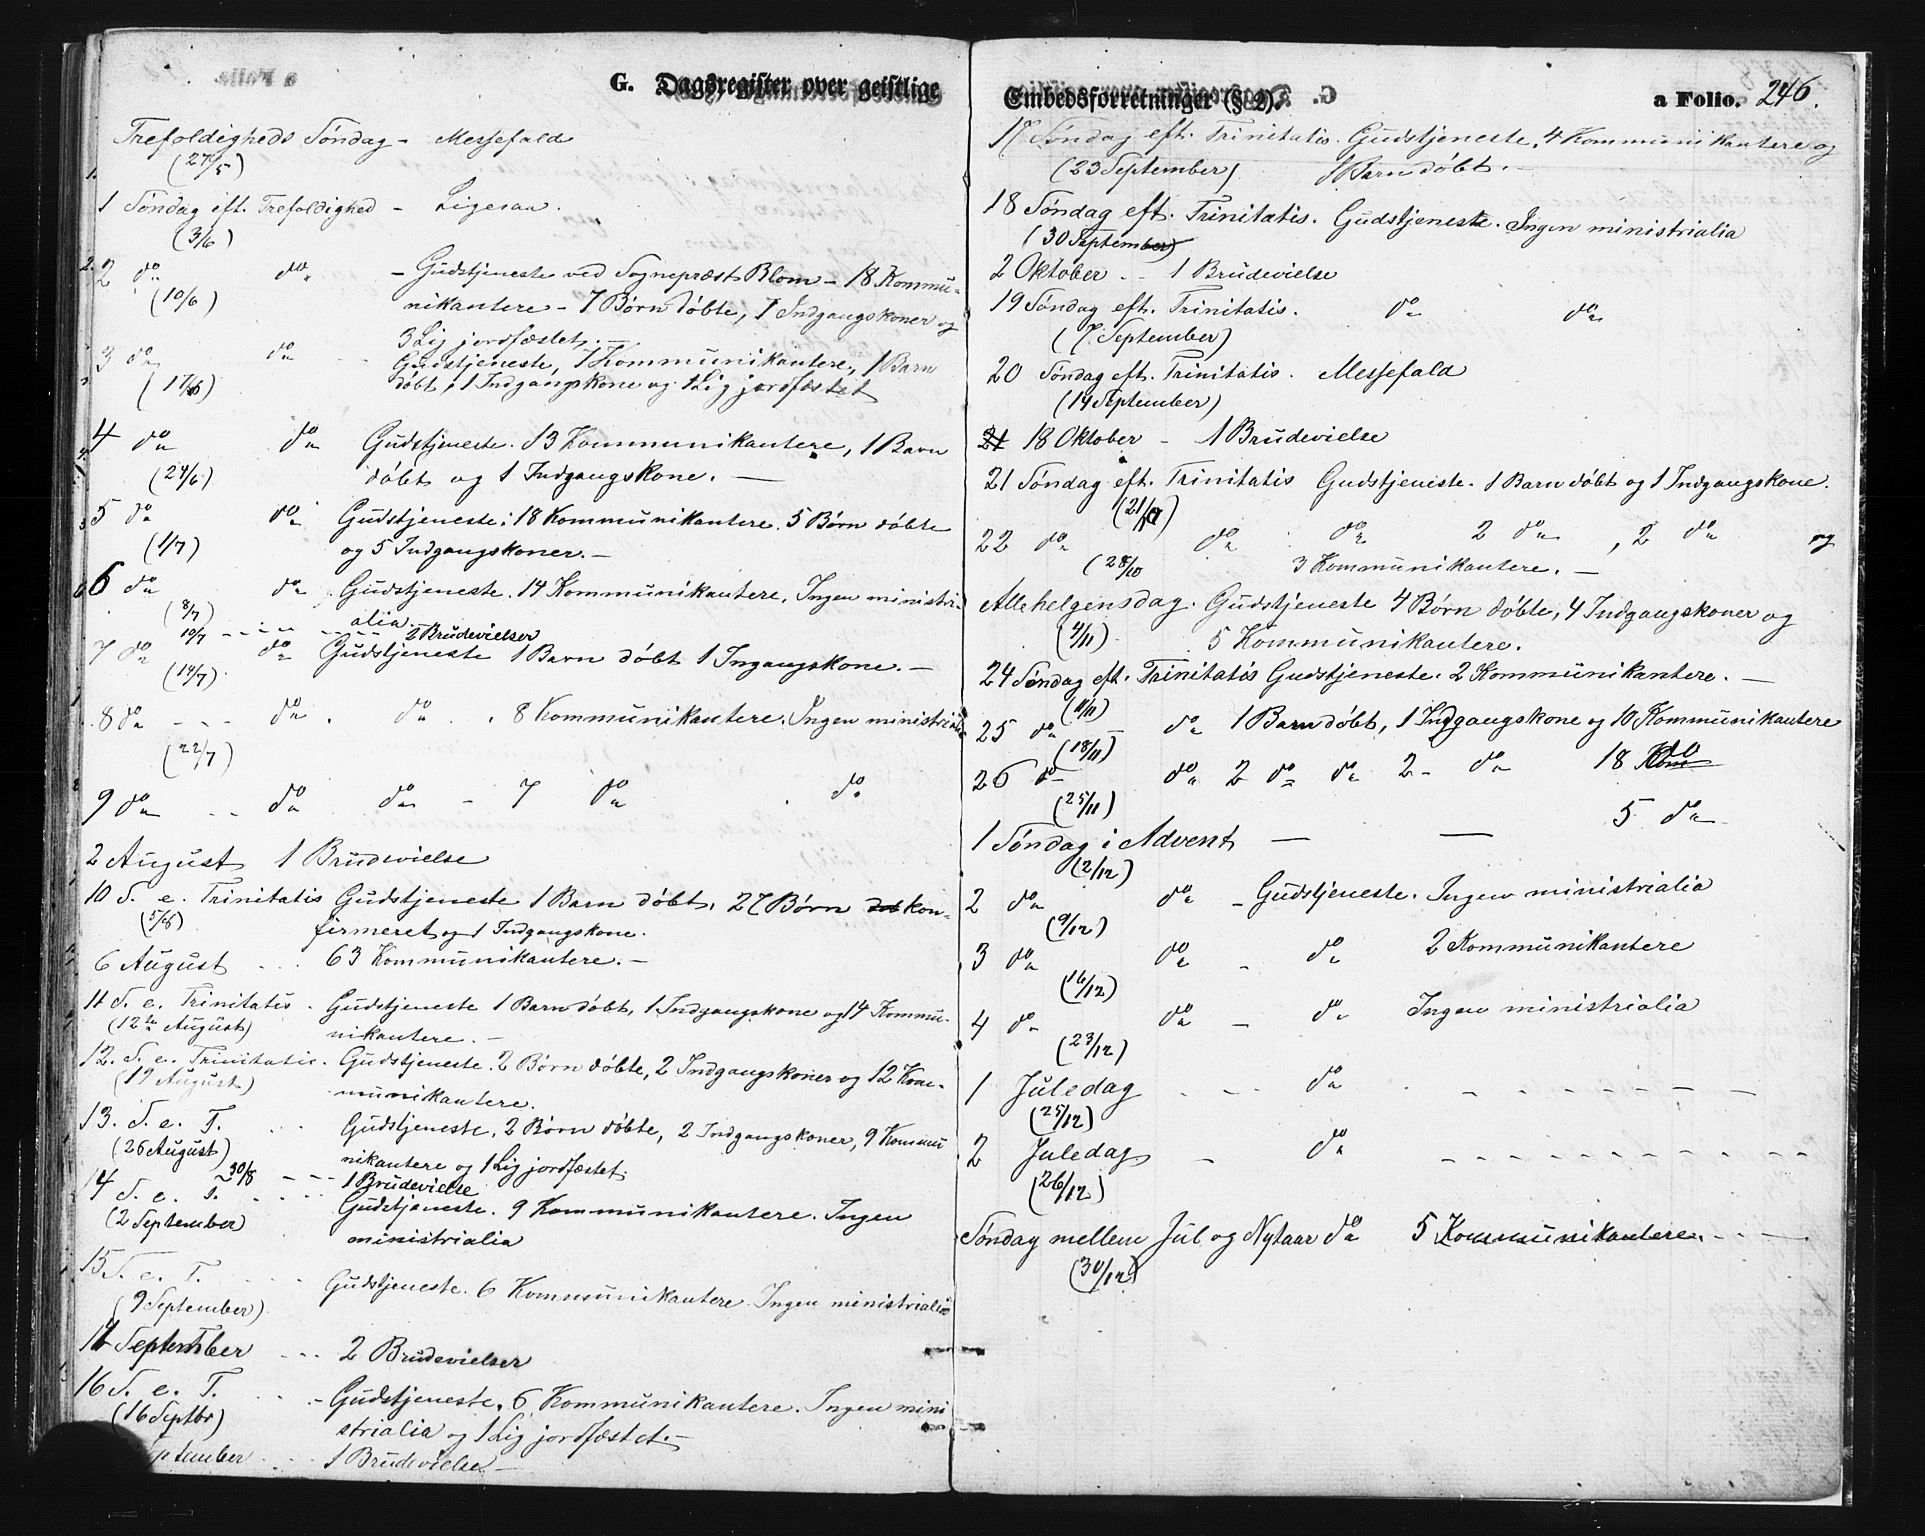 G. Dagsregister over geistlige
Trefoldigheds Søndag - Messefald
(27/5)
1 Søndag eft. Trefoldighed - Ligesaa.
(3/6)
2 do do - Gudstjeneste ved Sognepræst Blom - 18 Kommu-
(10/6) nikantere - 7 Børn døbte, 7 Indgangskoner og
3 Lig jordfæstet. -
3 do do - Gudstjeneste, 7 Kommunikantere, 1 Barn
(17/6) døbt, 1 Indgangskone og 1 Lig jordfæstet
4 do do Gudstjeneste. 13 Kommunikantere, 1 Barn
(24/6) døbt og 1 Indgangskone. -
5 do do Gudstjeneste: 18 Kommunikantere. 5 Børn døbte
(1/7) og 5 Indgangskoner. -
6 do do Gudstjeneste. 14 Kommunikantere, Ingen ministri-
(8/7) alia -
10/7 - - - - 2 Brudevielser
7 do do Gudstjeneste 1 Barn døbt 1 Ingangskone. -
(14/7)
8 do - - - do . do . 8 Kommunikantere. Ingen ministrialia
(22/7)
9 do - - do do - 7 do . do
2 August 1 Brudevielse
10 S. e. Trinitatis Gudstjeneste 1 Barn døbt. 27 Børn kon-
(5/8) firmeret og 1 Indgangskone.
6 August - - - 63 Kommunikantere. -
11 S. e. Trinitatis. Gudstjeneste 1 Barn døbt, 1 Indgangskone og 14 Kommu-
(12te August) nikantere. -
12. S. e. Trinitatis. Gudstjeneste. 2 Børn døbte, 2 Indgangskoner og 12 Kom-
(19 August) munikantere.
13. S. e. T. - - - Gudstjeneste, 2 Børn døbte, 2 Indgangskoner, 9 Kommu
(26 August) nikantere og 1 Lig jordfæstet.
30/8 - - - 1 Brudevielse
14 S. e. T. - - - - Gudstjeneste. 9 Kommunikantere. Ingen
(2 September) ministrialia
15 S. e. T. - - - Gudstjeneste. 6 Kommunikantere. Ingen ministrialia
(9 September)
14 September - - - 2 Brudevielser
16 S. e. T. - - - Gudstjeneste, 6 Kommunikantere. Ingen mini
(16 Septbr) strialia og 1 Lig jordfæstet. -
ptember - - - 1 Brudevielse -
Embedsforretninger (§ 2). a Folio. 246.
17 Søndag eft. Trinitatis. Gudstjeneste, 4 Kommunikantere og
(23 September) 1 Barn døbt. -
18 Søndag eft. Trinitatis. Gudstjeneste. Ingen ministrialia
(30 September)
2 Oktober - - 1 Brudevielse
19 Søndag eft. Trinitatis. do do
(7. September)
20 Søndag eft. Trinitatis. Messefald
(14 September)
21 18 Oktober - 1 Brudevielse
21 Søndag eft. Trinitatis Gudstjeneste. 1 Barn døbt og 1 Indgangskone.
(21/10)
22 do do do 2 do, 2 do og
(28/10 3 Kommunikantere. -
Allehelgensdag. Gudstjeneste 4 Børn døbte, 4 Indgangskoner og
(4/11) 5 Kommunikantere.
24 Søndag eft. Trinitatis Gudstjeneste. 2 Kommunikantere. -
(11/11)
25 do - do 1 Barn døbt, 1 Indgangskone og 10 Kommunikantere
(18/11)
26 do do 2 do do 2 - do 18 Kom do
(25/11)
1 Søndag i Advent - - 5 do
(2/12)
2 do do - Gudstjeneste. Ingen ministrialia
(9/12)
3 do do - do 2 Kommunikantere
(16/12)
4 do do - do Ingen ministrialia
(23/12)
1 Juledag - - - do - - - - - - -
(25/12)
2 Juledag - do - - - - - - - - - -
(26/12)
Søndag mellem Jul og Nytaar do 5 Kommunikantere. - - -
(30/12)